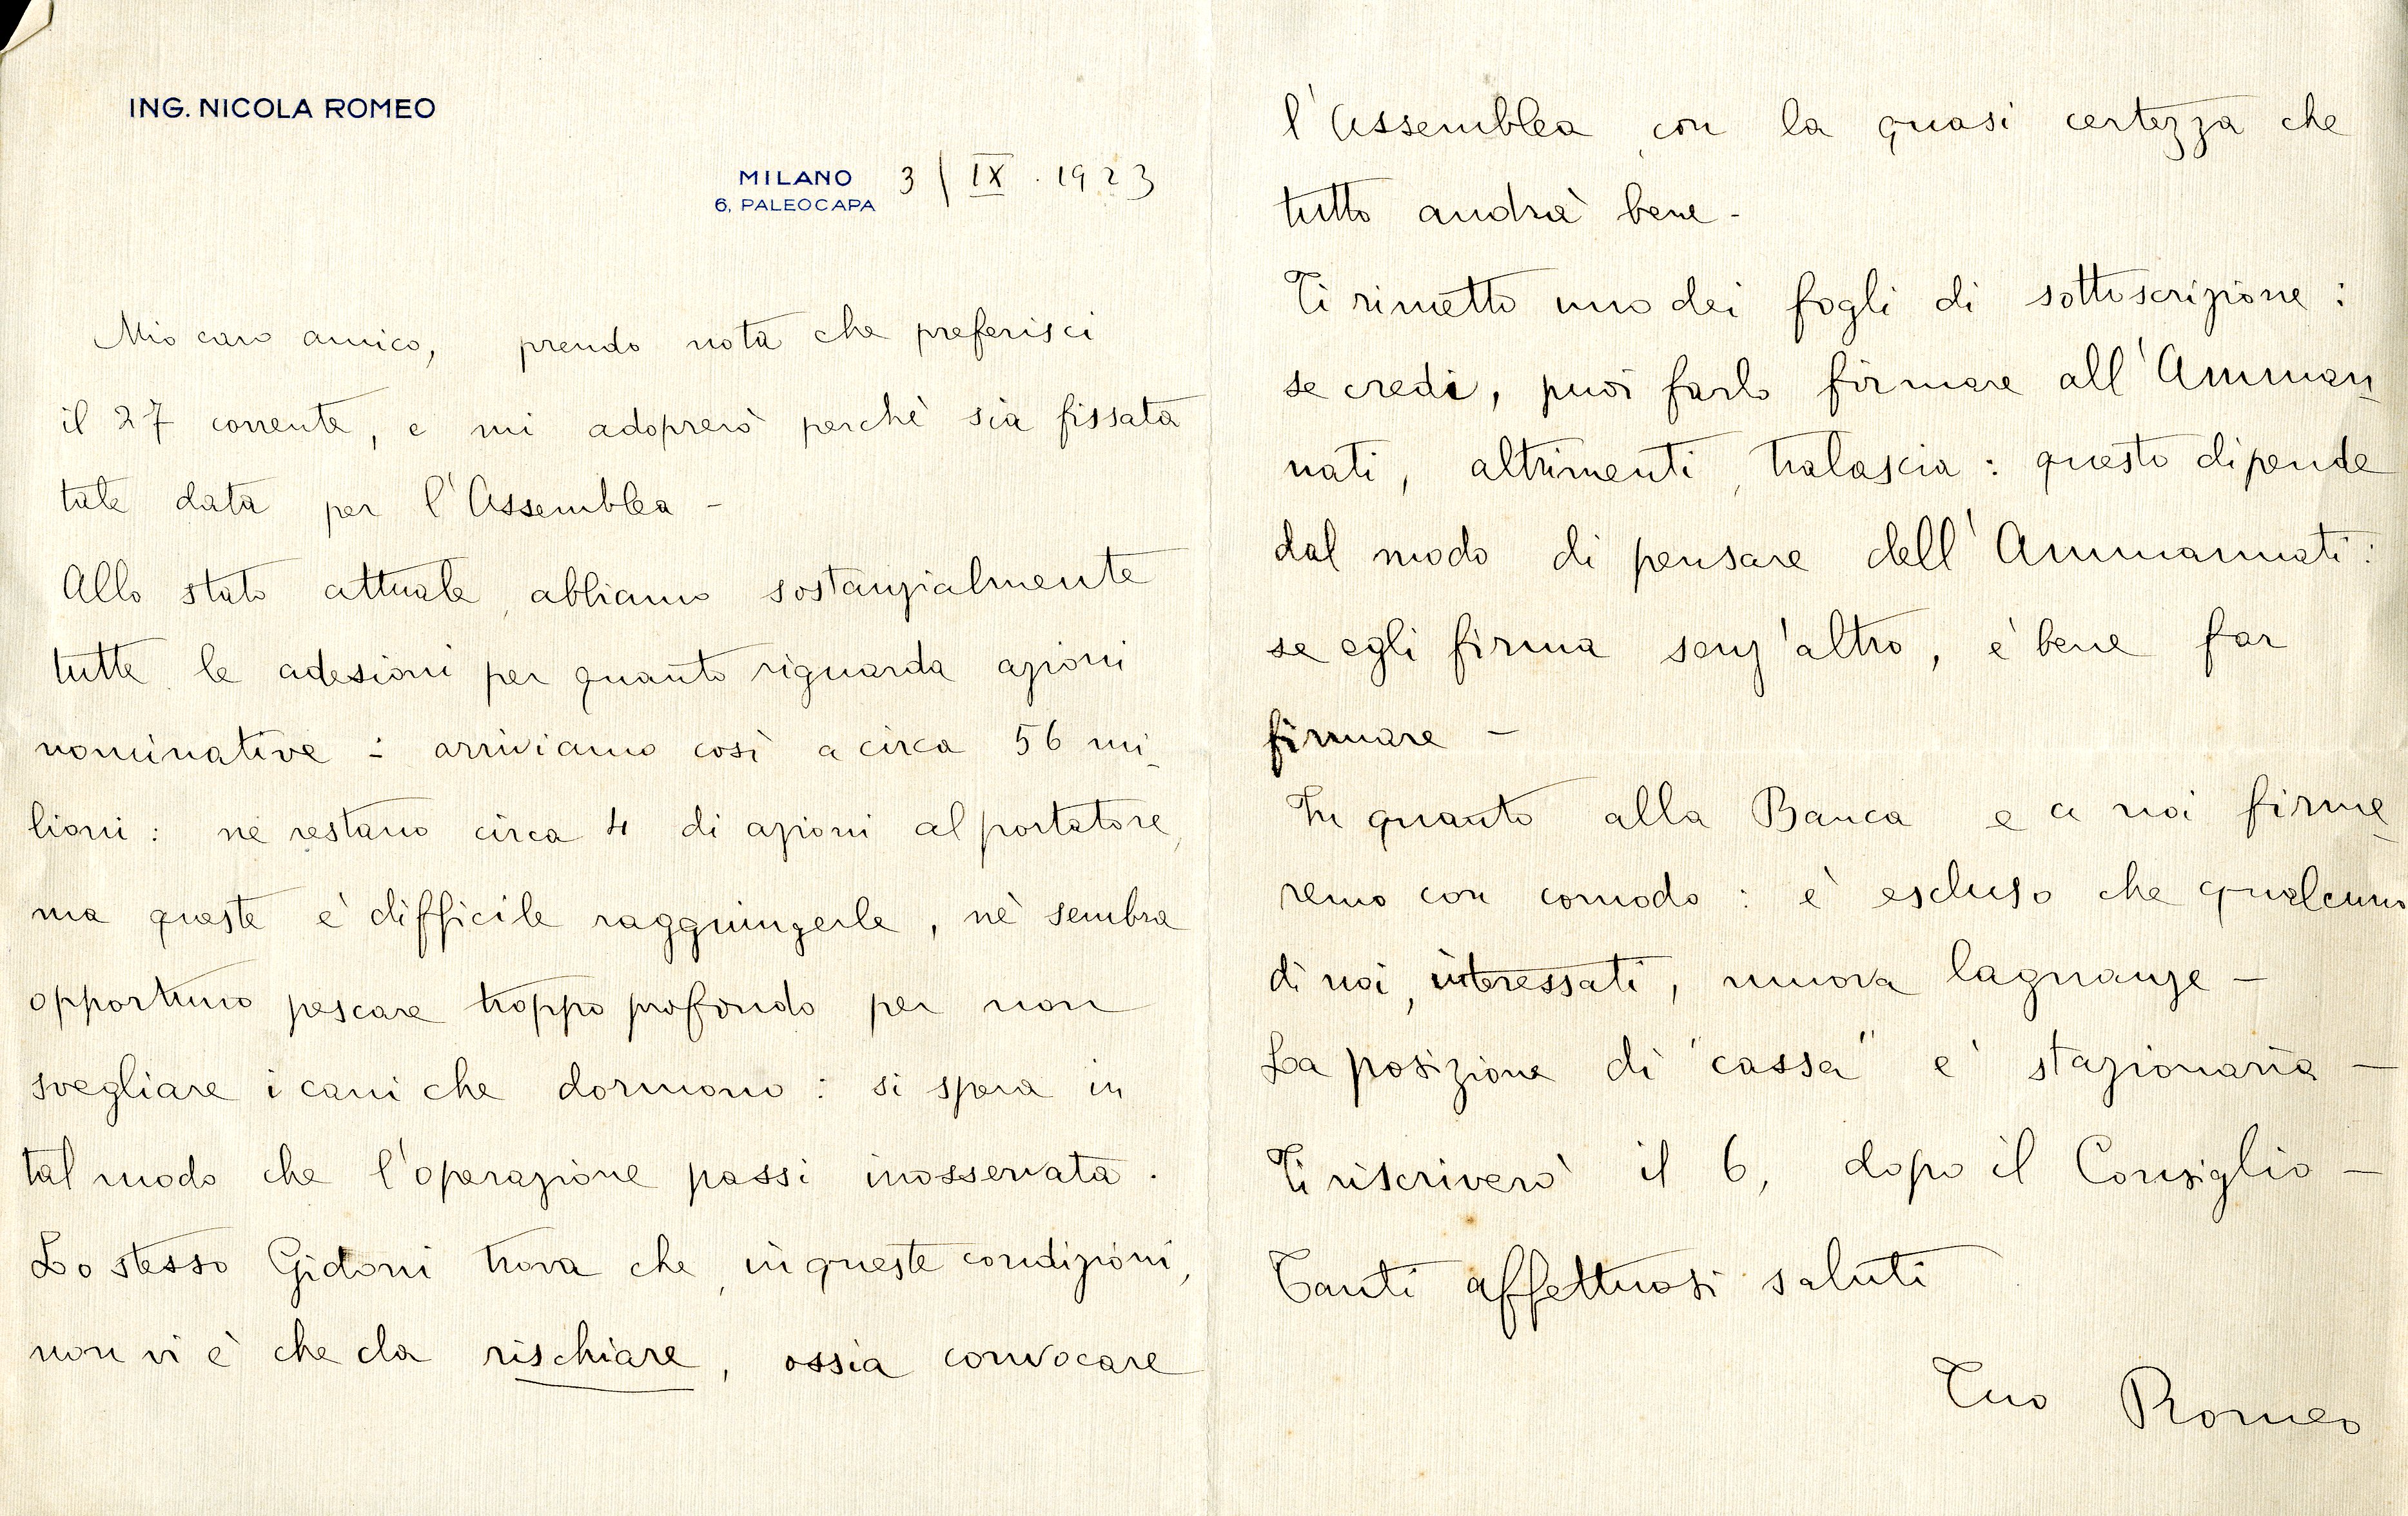 ING. NICOLA ROMEO
MILANO 3/IX.1923
6, PALEOCAPA
Mio caro amico, prendo nota che preferisci
il 27 corrente, e mi adoprerò perchè sia fissata
tale data per l'Assemblea -
Allo stato attuale, abbiamo sostanzialmente
tutte le adesioni per quanto riguarda azioni
nominative : arriviamo così a circa 56 mi-
lioni : ne restano circa 4 di azioni al portatore,
ma queste è difficile raggiungerle, nè sembra
opportuno pescare troppo profondo per non
svegliare i cani che dormono : si spera in
tal modo che l'operazione passi inosservata.
Lo stesso Gidoni trova che, in queste condizioni,
non vi è che da rischiare, ossia convocare
l'Assemblea, con la quasi certezza che
tutto andrà bene -
Ti rimetto uno dei fogli di sottoscrizione :
se credi, puoi farlo firmare all'Amman-
nati, altrimenti, tralascia : questo dipende
dal modo di pensare dell'Ammannati :
se egli firma senz'altro, è bene far
firmare -
In quanto alla Banca e a noi firme-
remo con comodo : è escluso che qualcuno
di noi, interessati, muova lagnanze -
La posizione di "cassa" è stazionaria -
Ti riscriverò il 6, dopo il Consiglio -
Tanti affettuosi saluti
Tuo Romeo